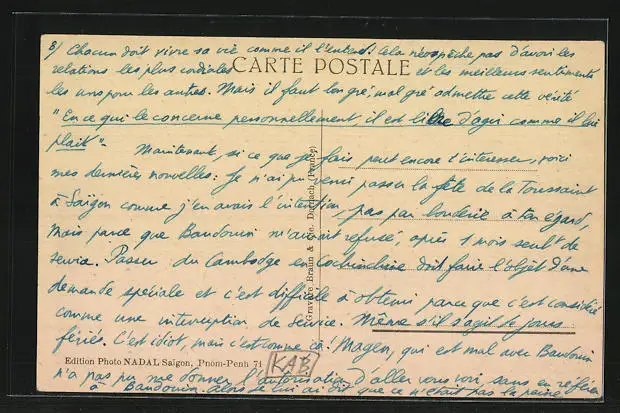 8/ Chacun doit vivre sa vie comme il l'entend. Cela n'empêche pas d'avoir les
relations les plus cordiales et les meilleurs sentiments
CARTE POSTALE
les uns pour les autres. Mais il faut bon gré, mal gré admettre cette vérité
"En ce qui le concerne personnellement, il est libre d'agir comme il lui
plaît".
Maintenant, si ce que je fais peut encore t'intéresser, voici
mes dernières nouvelles: Je n'ai pu venir passer la fête de la Toussaint
à Saïgon comme j'en avais l'intention, pas par bouderie à ton égard,
mais parce que Baudouin m'avait refusé, après 1 mois seult de
service. Passer du Cambodge en Cochinchine doit faire l'objet d'une
demande spéciale et c'est difficile à obtenir parce que c'est considéré
comme une interruption de service. Même s'il s'agit de jours
fériés. C'est idiot, mais c'est comme ça! Magen, qui est mal avec Baudouin
Gravure Braun & Cie, Dornach (France)
Edition Photo NADAL Saïgon, Pnom-Penh 71
KAB
n'a pas pu me donner l'autorisation d'aller vous voir, sans en référer
à Baudouin. Alors je lui ai dit que ce n'était pas la peine